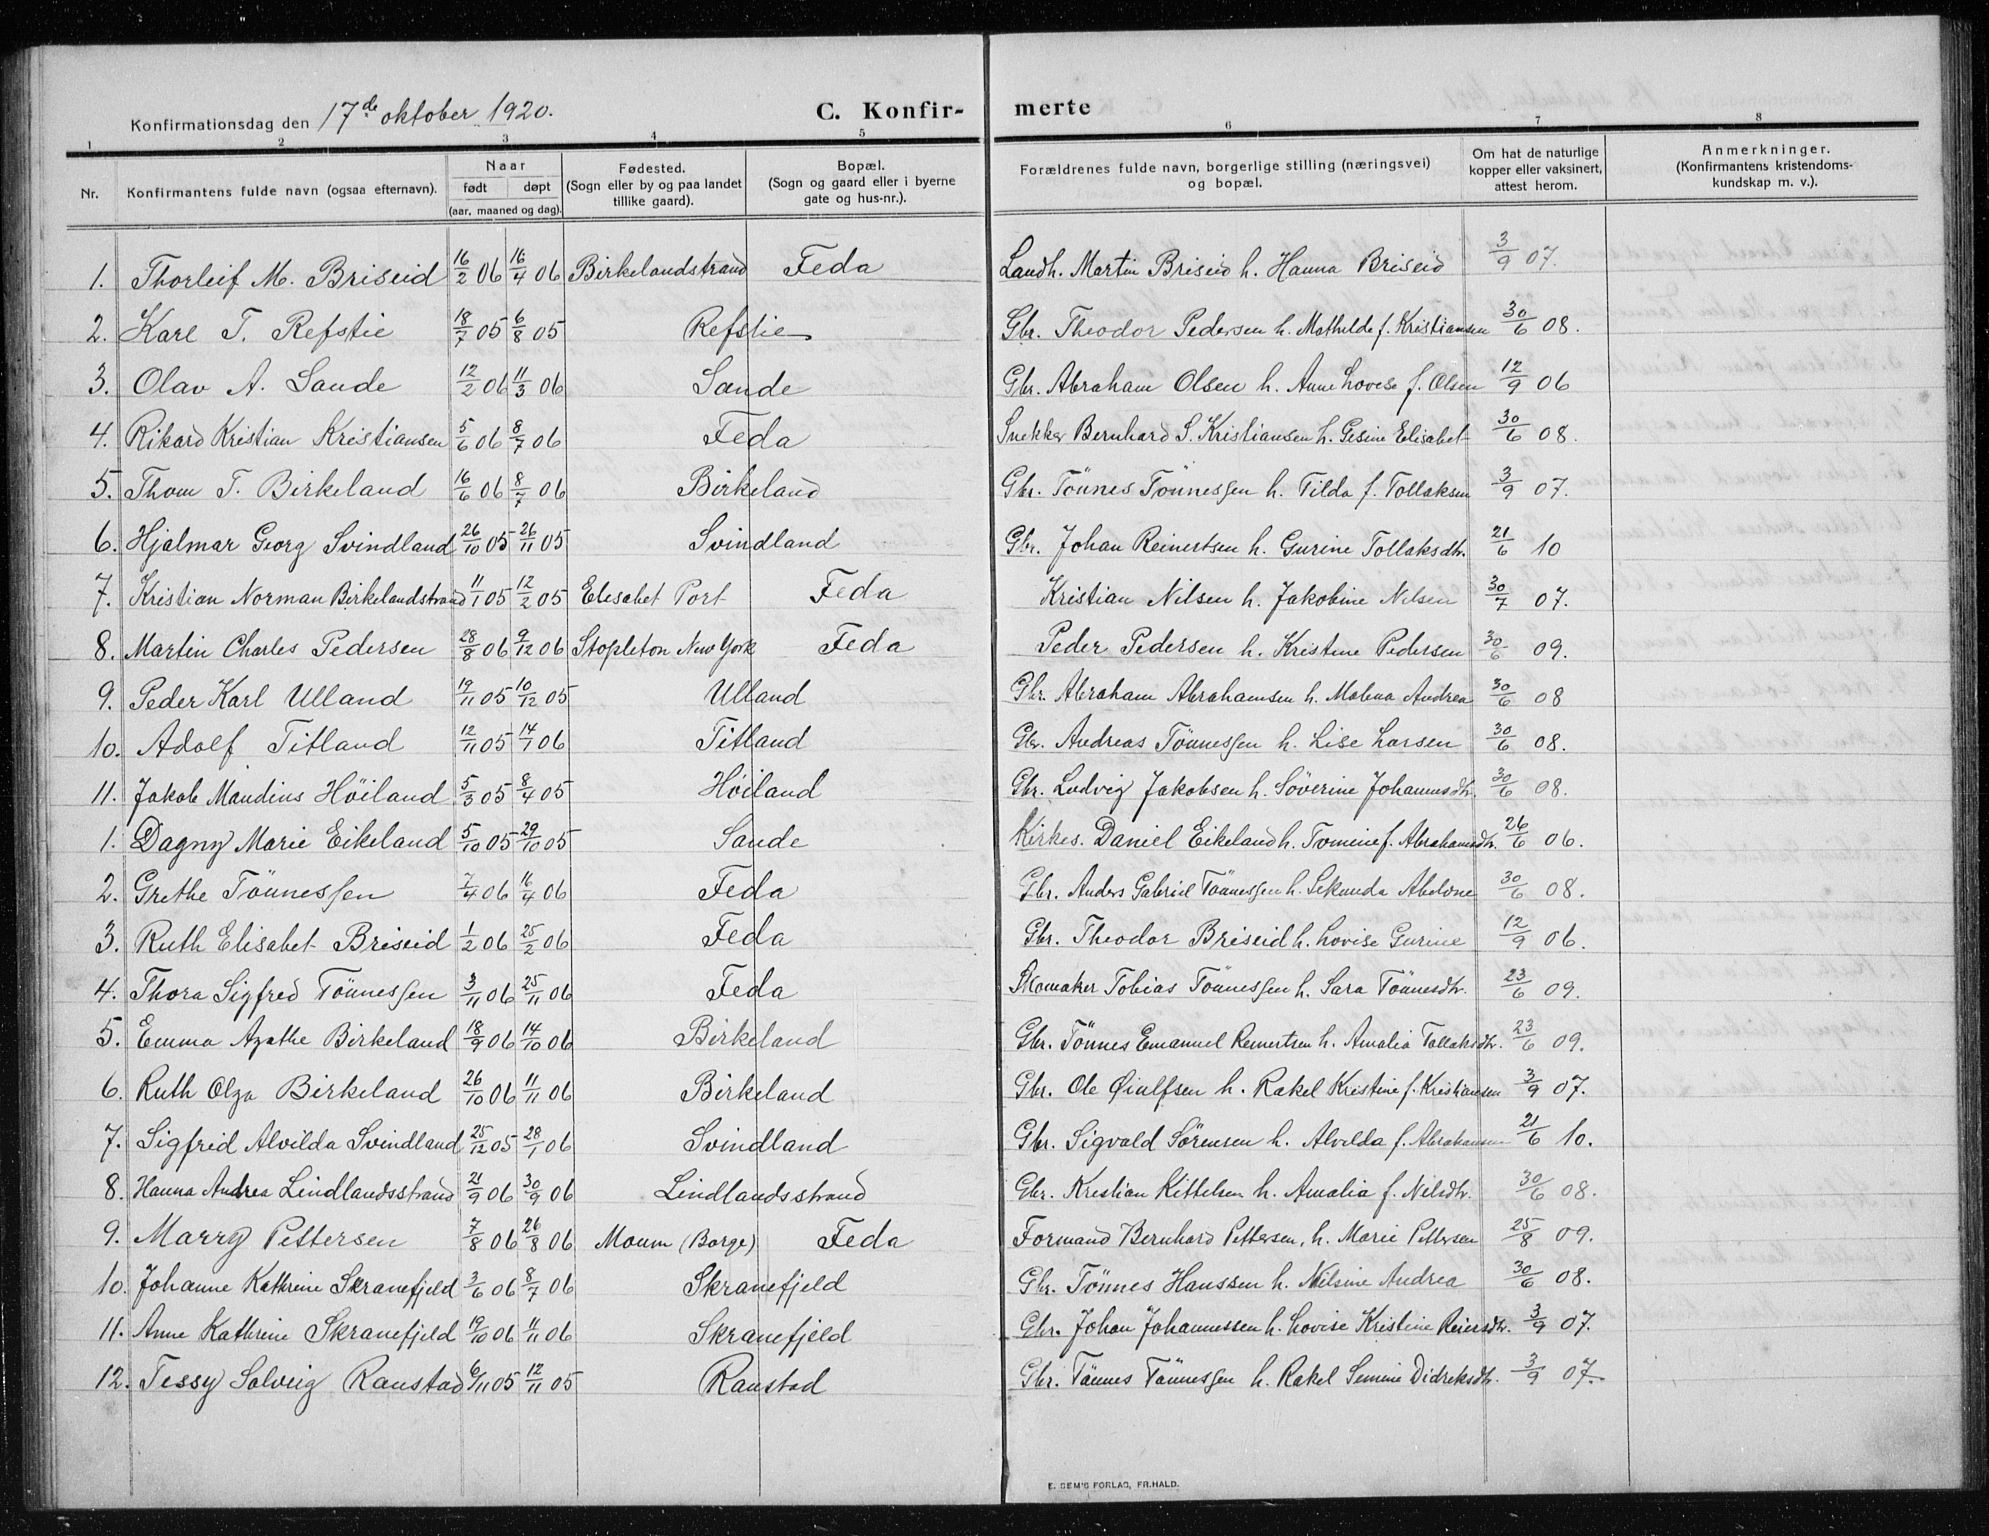 Konfirmationsdag den 17de oktober 1920.
C. Konfir-
merte
1 2 3 4 5 6 7 8
Nr. Konfirmantens fulde navn (ogsaa efternavn). Naar født døpt (aar, maaned og dag). Fødested. (Sogn eller by og paa landet tillike gaard). Bopæl. (Sogn og gaard eller i byerne gate og hus-nr.). Forældrenes fulde navn, borgerlige stilling (næringsvei) og bopæl. Om hat de naturlige kopper eller vaksinert, attest herom. Anmerkninger. (Konfirmantens kristendoms-kundskap m. v.).
1. Thorleif M. Briseid 16/2 06 16/4 06 Birkelandstrand Feda Landh. Martin Briseid h. Hanna Briseid 3/9 07.
2. Karl T. Refstie 18/7 05 6/8 05 Refstie Gbr. Theodor Pedersen h. Mathilde f. Kristiansen 30/6 08.
3. Olav A. Sande 12/2 06 11/3 06 Sande Gbr. Abraham Olsen h. Anne Lovise f. Olsen 12/9 06
4. Rikard Kristian Kristiansen 5/6 06 8/7 06 Feda Snekker Bernhard S. Kristiansen h. Gesine Elisabet 30/6 08.
5. Thom T. Birkeland 16/6 06 8/7 06 Birkeland Gbr. Tönnes Tönnessen h. Tilda f. Tollaksen 3/9 07.
6. Hjalmar Georg Svindland 26/10 05 26/11 05 Svindland Gbr. Johan Reinertsen h. Gurine Tollaksdtr. 21/6 10
7. Kristian Norman Birkelandstrand 11/1 05 12/2 05 Elesabet Port Feda Kristian Nilsen h. Jakobine Nilsen 30/7 07.
8. Martin Charles Pedersen 28/8 06 9/12 06 Stopleton New York Feda Peder Pedersen h. Kristine Pedersen 30/6 09.
9. Peder Karl Ulland 19/11 05 10/12 05 Ulland Gbr. Abraham Abrahamsen h. Malena Andrea 30/6 08
10. Adolf Titland 12/11 05 14/1 06 Titland Gbr. Andreas Tönnessen h. Lise Larsen 30/6 08.
11. Jakob Mandius Höiland 5/3 05 8/4 05 Höiland Gbr. Ludvig Jakobsen h. Söverine Johannesdtr. 30/6 08.
1. Dagny Marie Eikeland 5/10 05 29/10 05 Sande Kirkes. Daniel Eikeland h. Tomine f. Abrahamsdtr. 26/6 06.
2. Grethe Tönnessen 7/4 06 16/4 06 Feda Gbr. Anders Gabriel Tönnessen h. Sekunda Abelone 30/6 08.
3. Ruth Elisabet Briseid 1/2 06 25/2 06 Feda Gbr. Theodor Briseid h. Lovise Gurine 12/9 06.
4. Thora Sigfred Tönnessen 3/11 06 25/11 06 Feda Skomaker Tobias Tönnessen h. Sara Tönnesdtr. 23/6 09.
5. Emma Agathe Birkeland 18/9 06 14/10 06 Birkeland Gbr. Tönnes Emanuel Reinertsen h. Amalia Tollaksdtr. 23/6 09.
6. Ruth Olga Birkeland 26/10 06 11/11 06 Birkeland Gbr. Ole Øialfsen h. Rakel Kristine f. Kristiansen 3/9 07.
7. Sigfrid Alvilda Svindland 25/12 05 28/1 06 Svindland Gbr. Sigvald Sörensen h. Alvilda f. Abrahamsen 21/6 10.
8. Hanna Andrea Lindlandsstrand 21/9 06 30/9 06 Lindlandsstrand Gbr. Kristian Kittelsen h. Amalia f. Nilsdtr. 30/6 08.
9. Marry Pettersen 7/8 06 26/8 06 Moum (Borge) Feda Formand Bernhard Pettersen, h. Marie Pettersen 25/8 09.
10. Johanne Kathrine Skranefjeld 3/6 06 8/7 06 Skranefjeld Gbr. Tönnes Hanssen h. Nilsine Andrea 30/6 08.
11. Anne Kathrine Skranefjeld 19/10 06 11/11 06 Skranefjeld Gbr. Johan Johannessen h. Lovise Kristine Reiersdtr. 3/9 07.
12. Tessy Solveig Ranstad 6/11 05 12/11 05 Ranstad Gbr. Tönnes Tönnessen h. Rakel Semine Didreksdtr. 3/9 07.
E. SEM'S FORLAG, FR.HALD.